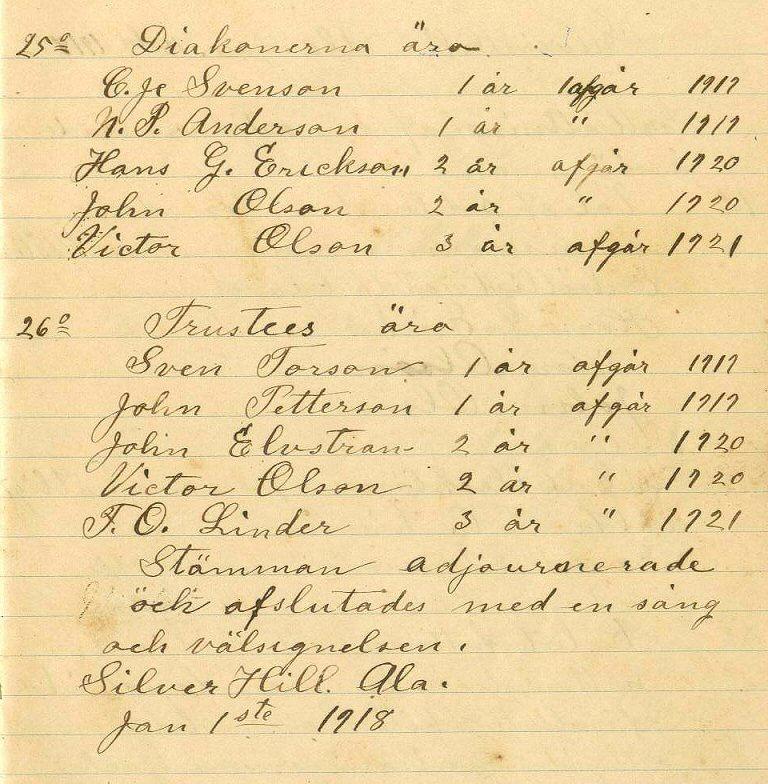 25º Diakonerna äro
C. Je Svenson 1 år afgår 1919
N. P. Anderson 1 år " 1919
Hans G. Erickson 2 år afgår 1920
John Olson 2 år " 1920
Victor Olson 3 år afgår 1921
26º Trustees äro
Sven Torson 1 år afgår 1919
John Petterson 1 år afgår 1919
John Elvstran- 2 år " 1920
Victor Olson 2 år " 1920
F. O. Linder 3 år " 1921
Stämman adjournerade
och afslutades med en sång
och välsignelsen.
Silver Hill. Ala.
Jan 1ste 1918